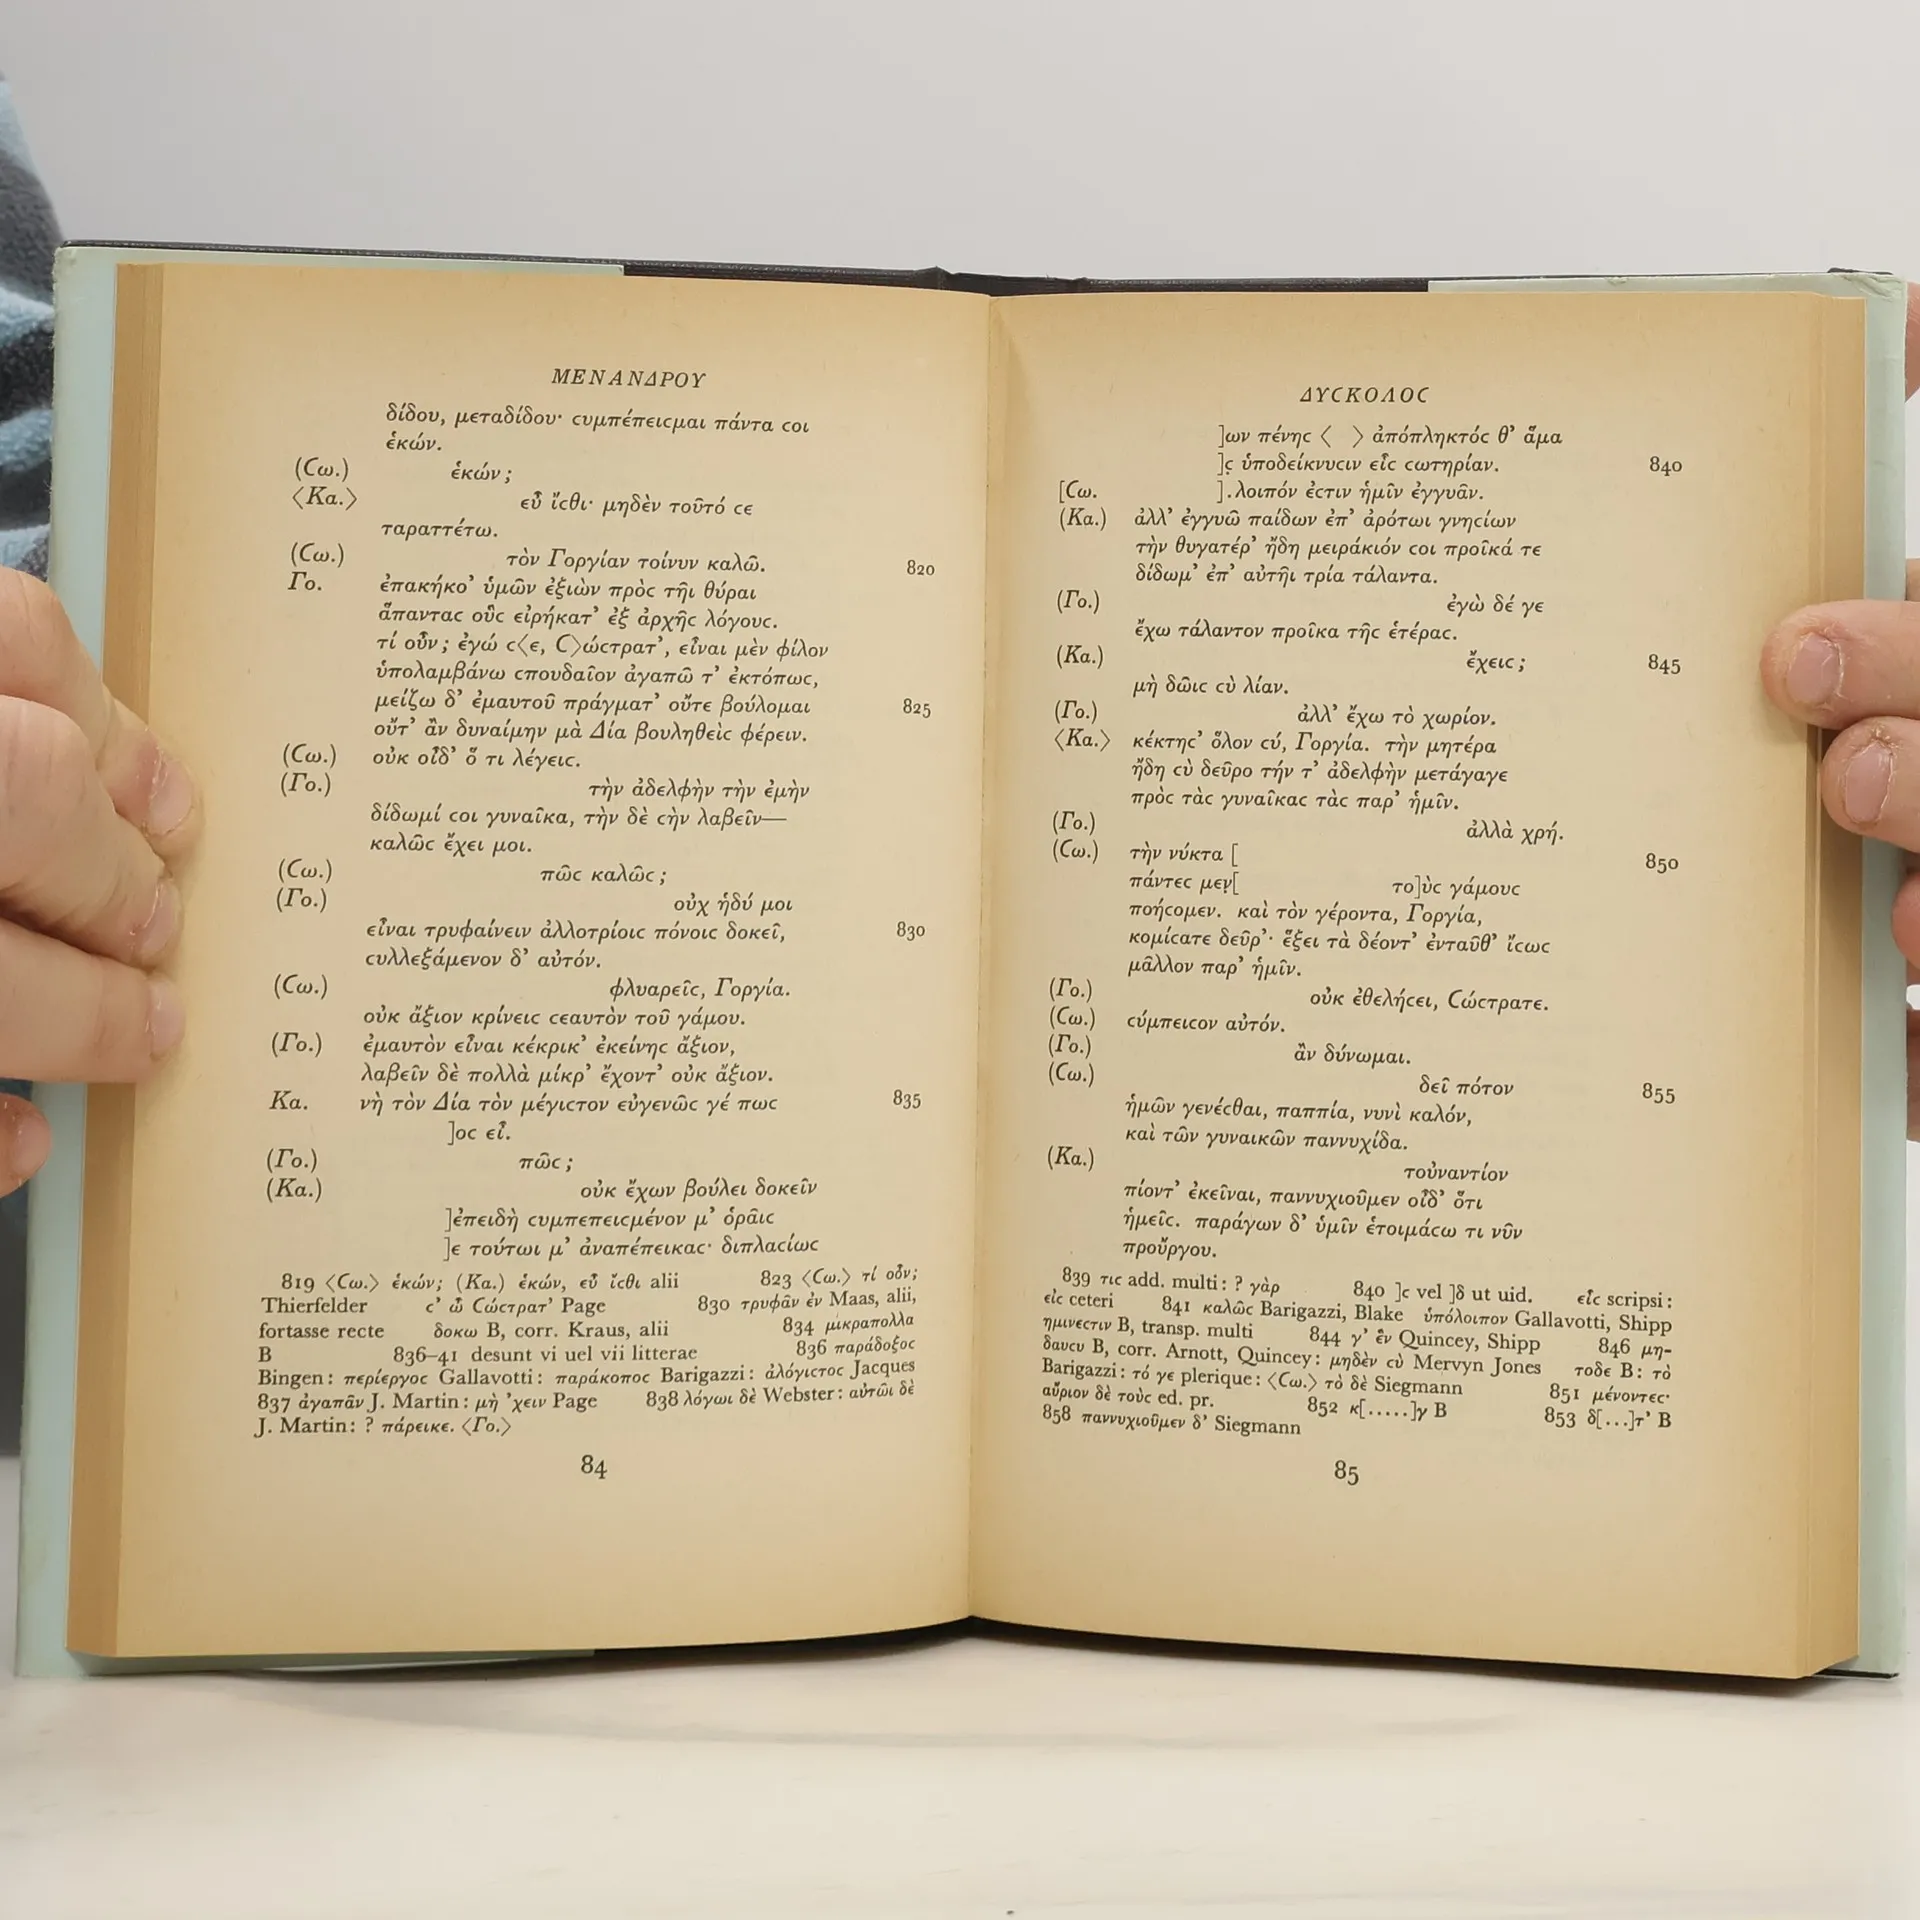 ΜΕΝΑΝΔΡΟΥ
δίδου, μεταδίδου· ϲυμπέπειϲμαι πάντα ϲοι
ἑκών.
(Ϲω.) ἑκών;
⟨Κα.⟩ εὖ ἴϲθι· μηδὲν τοῦτό ϲε
ταραττέτω.
(Ϲω.) τὸν Γοργίαν τοίνυν καλῶ. 820
Γο. ἐπακήκο’ ὑμῶν ἐξιὼν πρὸϲ τῆι θύραι
ἅπανταϲ οὓϲ εἰρήκατ’ ἐξ ἀρχῆϲ λόγουϲ.
τί οὖν; ἐγώ ϲ⟨ε, Ϲ⟩ώϲτρατ’, εἶναι μὲν φίλον
ὑπολαμβάνω ϲπουδαῖον ἀγαπῶ τ’ ἐκτόπωϲ,
μείζω δ’ ἐμαυτοῦ πράγματ’ οὔτε βούλομαι 825
οὔτ’ ἂν δυναίμην μὰ Δία βουληθεὶϲ φέρειν.
(Ϲω.) οὐκ οἶδ’ ὅ τι λέγειϲ.
(Γο.) τὴν ἀδελφὴν τὴν ἐμὴν
δίδωμί ϲοι γυναῖκα, τὴν δὲ ϲὴν λαβεῖν—
καλῶϲ ἔχει μοι.
(Ϲω.) πῶϲ καλῶϲ;
(Γο.) οὐχ ἡδύ μοι
εἶναι τρυφαίνειν ἀλλοτρίοιϲ πόνοιϲ δοκεῖ, 830
ϲυλλεξάμενον δ’ αὐτόν.
(Ϲω.) φλυαρεῖϲ, Γοργία.
οὐκ ἄξιον κρίνειϲ ϲεαυτὸν τοῦ γάμου.
(Γο.) ἐμαυτὸν εἶναι κέκρικ’ ἐκείνηϲ ἄξιον,
λαβεῖν δὲ πολλὰ μίκρ’ ἔχοντ’ οὐκ ἄξιον.
Κα. νὴ τὸν Δία τὸν μέγιϲτον εὐγενῶϲ γέ πωϲ 835
]οϲ εἶ.
(Γο.) πῶϲ;
(Κα.) οὐκ ἔχων βούλει δοκεῖν
]ἐπειδὴ ϲυμπεπειϲμένον μ’ ὁρᾶιϲ
]ε τούτωι μ’ ἀναπέπεικαϲ· διπλαϲίωϲ
819 ⟨Ϲω.⟩ ἑκών; (Κα.) ἑκών, εὖ ἴϲθι alii 823 ⟨Ϲω.⟩ τί οὖν;
Thierfelder ϲ’ ὦ Ϲώϲτρατ’ Page 830 τρυφᾶν ἐν Maas, alii,
fortasse recte δοκω B, corr. Kraus, alii 834 μικραπολλα
B 836–41 desunt vi uel vii litterae 836 παράδοξοϲ
Bingen: περίεργοϲ Gallavotti: παράκοποϲ Barigazzi: ἀλόγιϲτοϲ Jacques
837 ἀγαπᾶν J. Martin: μὴ ’χειν Page 838 λόγωι δὲ Webster: αὐτῶι δὲ
J. Martin: ? πάρεικε. ⟨Γο.⟩
84
ΔΥϹΚΟΛΟϹ
]ων πένηϲ ⟨ ⟩ ἀπόπληκτόϲ θ’ ἅμα
]ϲ̣ ὑποδείκνυϲιν εἷϲ ϲωτηρίαν. 840
[Ϲω. ].λοιπόν ἐϲτιν ἡμῖν ἐγγυᾶν.
(Κα.) ἀλλ’ ἐγγυῶ παίδων ἐπ’ ἀρότωι γνηϲίων
τὴν θυγατέρ’ ἤδη μειράκιόν ϲοι προῖκά τε
δίδωμ’ ἐπ’ αὐτῆι τρία τάλαντα.
(Γο.) ἐγὼ δέ γε
ἔχω τάλαντον προῖκα τῆϲ ἑτέραϲ.
(Κα.) ἔχειϲ; 845
μὴ δῶιϲ ϲὺ λίαν.
(Γο.) ἀλλ’ ἔχω τὸ χωρίον.
⟨Κα.⟩ κέκτηϲ’ ὅλον ϲύ, Γοργία. τὴν μητέρα
ἤδη ϲὺ δεῦρο τήν τ’ ἀδελφὴν μετάγαγε
πρὸϲ τὰϲ γυναῖκαϲ τὰϲ παρ’ ἡμῖν.
(Γο.) ἀλλὰ χρή.
(Ϲω.) τὴν νύκτα [ 850
πάντεϲ μεν̣[ το]ὺϲ γάμουϲ
ποήϲομεν. καὶ τὸν γέροντα, Γοργία,
κομίϲατε δεῦρ’· ἕξει τὰ δέοντ’ ἐνταῦθ’ ἴϲωϲ
μᾶλλον παρ’ ἡμῖν.
(Γο.) οὐκ ἐθελήϲει, Ϲώϲτρατε.
(Ϲω.) ϲύμπειϲον αὐτόν.
(Γο.) ἂν δύνωμαι.
(Ϲω.) δεῖ πότον 855
ἡμῶν γενέϲθαι, παππία, νυνὶ καλόν,
καὶ τῶν γυναικῶν παννυχίδα.
(Κα.) τοὐναντίον
πίοντ’ ἐκεῖναι, παννυχιοῦμεν οἶδ’ ὅτι
ἡμεῖϲ. παράγων δ’ ὑμῖν ἑτοιμάϲω τι νῦν
προὔργου.
839 τιϲ add. multi: ? γὰρ 840 ]ϲ vel ]δ ut uid. εἷϲ scripsi:
εἰϲ ceteri 841 καλῶϲ Barigazzi, Blake ὑπόλοιπον Gallavotti, Shipp
ημινεϲτιν B, transp. multi 844 γ’ ἓν Quincey, Shipp 846 μη-
δαυϲυ B, corr. Arnott, Quincey: μηδὲν ϲὺ Mervyn Jones τοδε B: τὸ
Barigazzi: τό γε plerique: ⟨Ϲω.⟩ τὸ δὲ Siegmann 851 μένοντεϲ·
αὔριον δὲ τοὺϲ ed. pr. 852 κ[.....]γ B 853 δ[...]τ’ B
858 παννυχιοῦμεν δ’ Siegmann
85